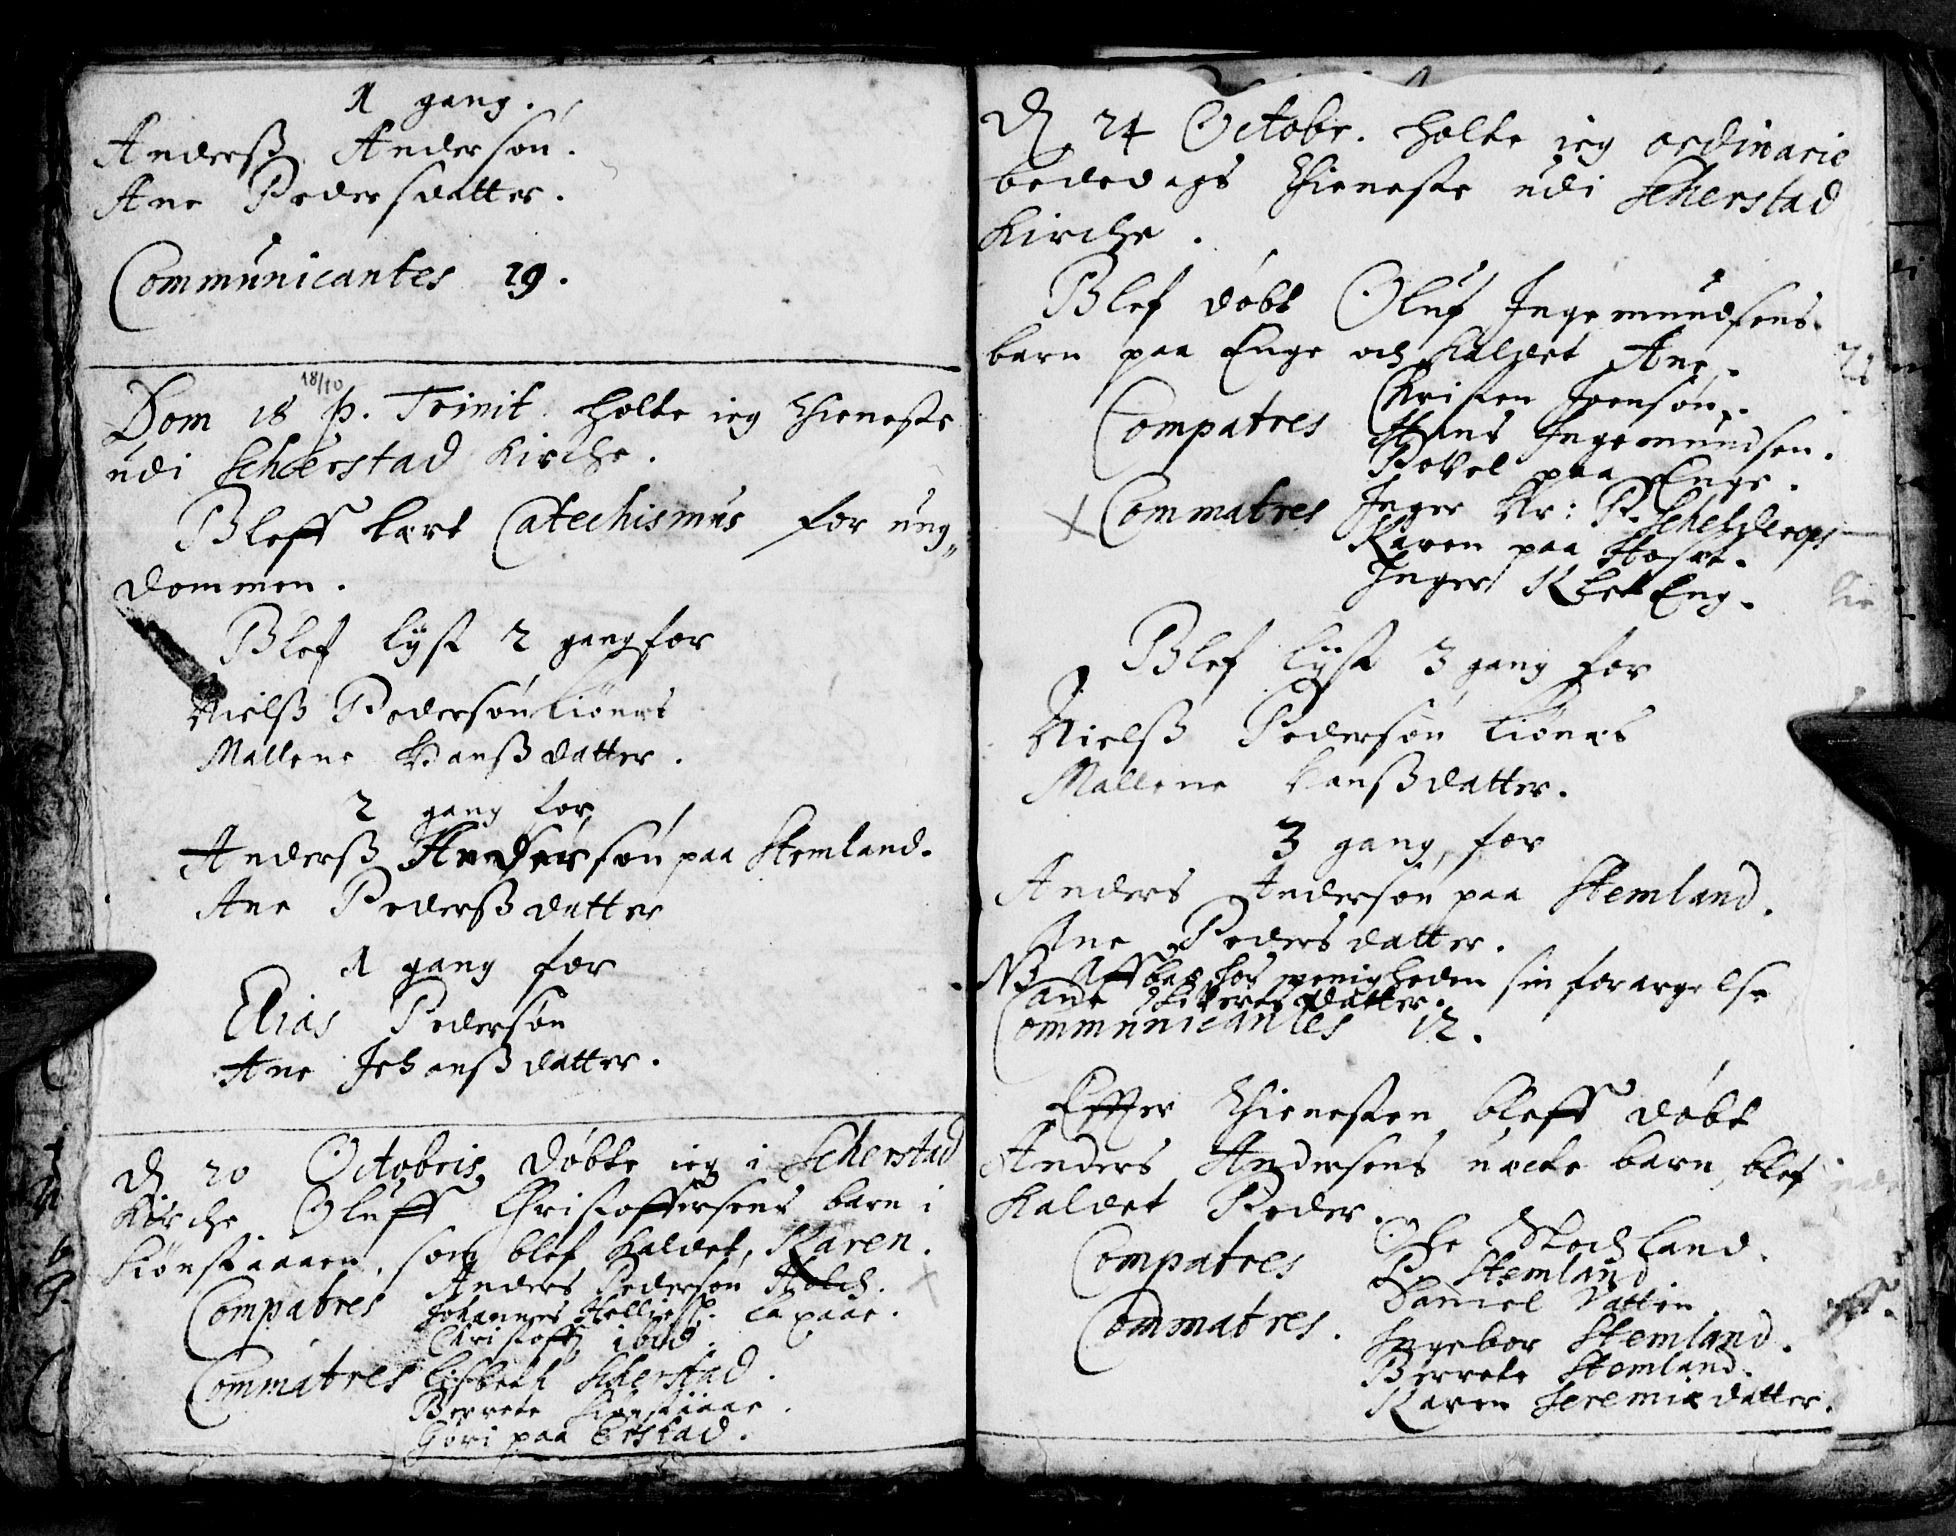 1 gang.
Anderss Andersøn.
Ane Pedersdatter.
Communicantes 19.
18/10
Dom 18 p. Trinit. holte ieg thieneste
udi Scherstad Kirche.
Bleff lært Catechismus for ung„
dommen.
Blef lyst 2 gang for
Nielss Pedersøn Tiönes
Mallene Hanssdatter.
2 gang for
Anderss Andersøn paa Stemland.
Ane Pederssdatter
1 gang for
Elias Pedersøn
Ane Johanssdatter.
D 20 Octobris døbte ieg i Scherstad
Kirche Oluff Christoffersens barn i
som blef kaldet Karen.
Compatres Anders Pedersøn
Johannes
Christoff ibid.
Commatres Lisbeth Scherstad.
Berrete
Gori paa
D 24 Octobr. holte ieg ordinarie
bededags thieneste udi Scherstad
Kirche.
Blef døbt Oluf Ingemundsens
barn paa Enge och kaldet Ane.
Compatres Christen Joensøn.
Hans Ingemundsen.
Povel paa Enge.
Commatres Inger
Karen paa
Inger Eng.
Blef lyst 3 gang for
Nielss Pedersøn Tiönes
Mallene Hanssdatter.
3 gang, for
Anders Andersøn paa Stemland.
Ane Pedersdatter.
NB Aff bad hos menigheden sin forargelse
datter.
Communicantes 12.
Effter thienesten bleff døbt
Anders Andersens uæcte barn, blef
kaldet Peder.
Compatres Ole Stochland.
P. Stemland
Daniel Vatten.
Commatres. Ingebor Stemland.
Berrete Stemland.
Karen Jeremiædatter.